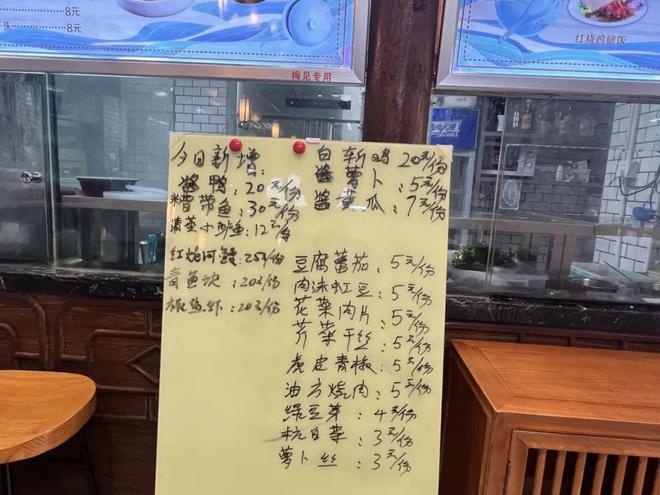 8元
8元
梅见专用
红烧鸡腿饭
今日新增:
酱鸭:20元/份
糟带鱼:30元/份
清蒸小鲈鱼:12元/份
红烧河鳗:25元/份
青鱼块:20元/份
椒盐虾:20元/份
白斩鸡20元/份
酱萝卜:5元/份
酱黄瓜:7元/份
豆腐蕃茄:5元/份
肉沫虹豆:5元/份
花菜肉片:5元/份
芹菜干丝:5元/份
虎皮青椒:5元/份
油方烧肉:5元/份
绿豆芽:4元/份
杭白菜:3元/份
萝卜丝:3元/份